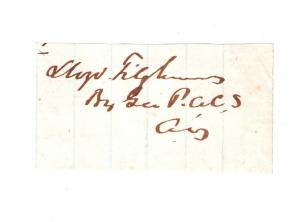 Lloyd Tilghman
Brig Gen P.A.C.S